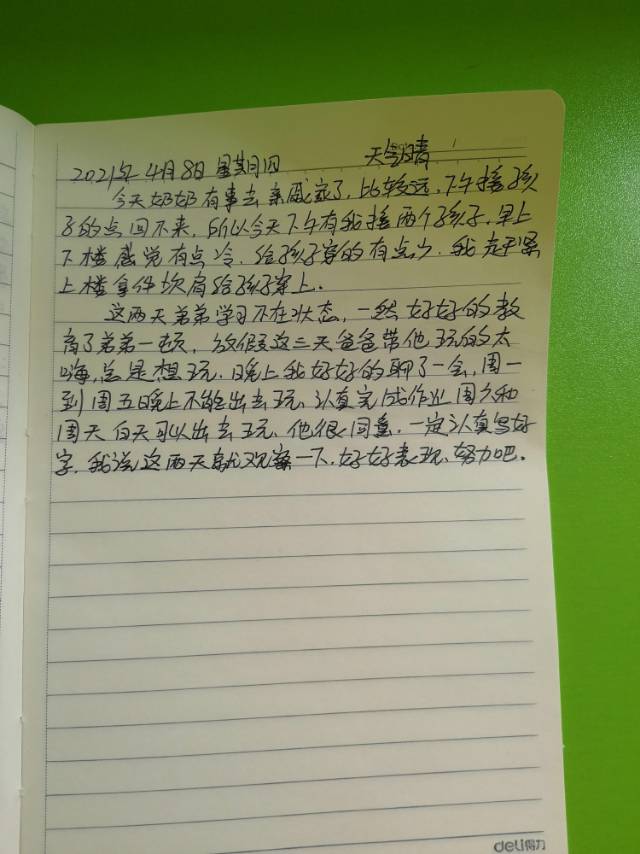 2021年4月8日 星期四 天气晴
今天奶奶有事去亲戚家了,比较远,下午接孩
子的点回不来,所以今天下午有我接两个孩子,早上
下楼感觉有点冷,给孩子穿的有点少,我赶紧
上楼拿件坎肩给孩子穿上。
这两天弟弟学习不在状态,一然好好的教
育了弟弟一顿,放假这三天爸爸带他玩的太
嗨,总是想玩,晚上我好好的聊了一会,周一
到周五晚上不能出去玩,认真完成作业,周六和
周天白天可以出去玩,他很同意,一定认真写好
字,我说这两天就观察一下,好好表现,努力吧。
deli得力